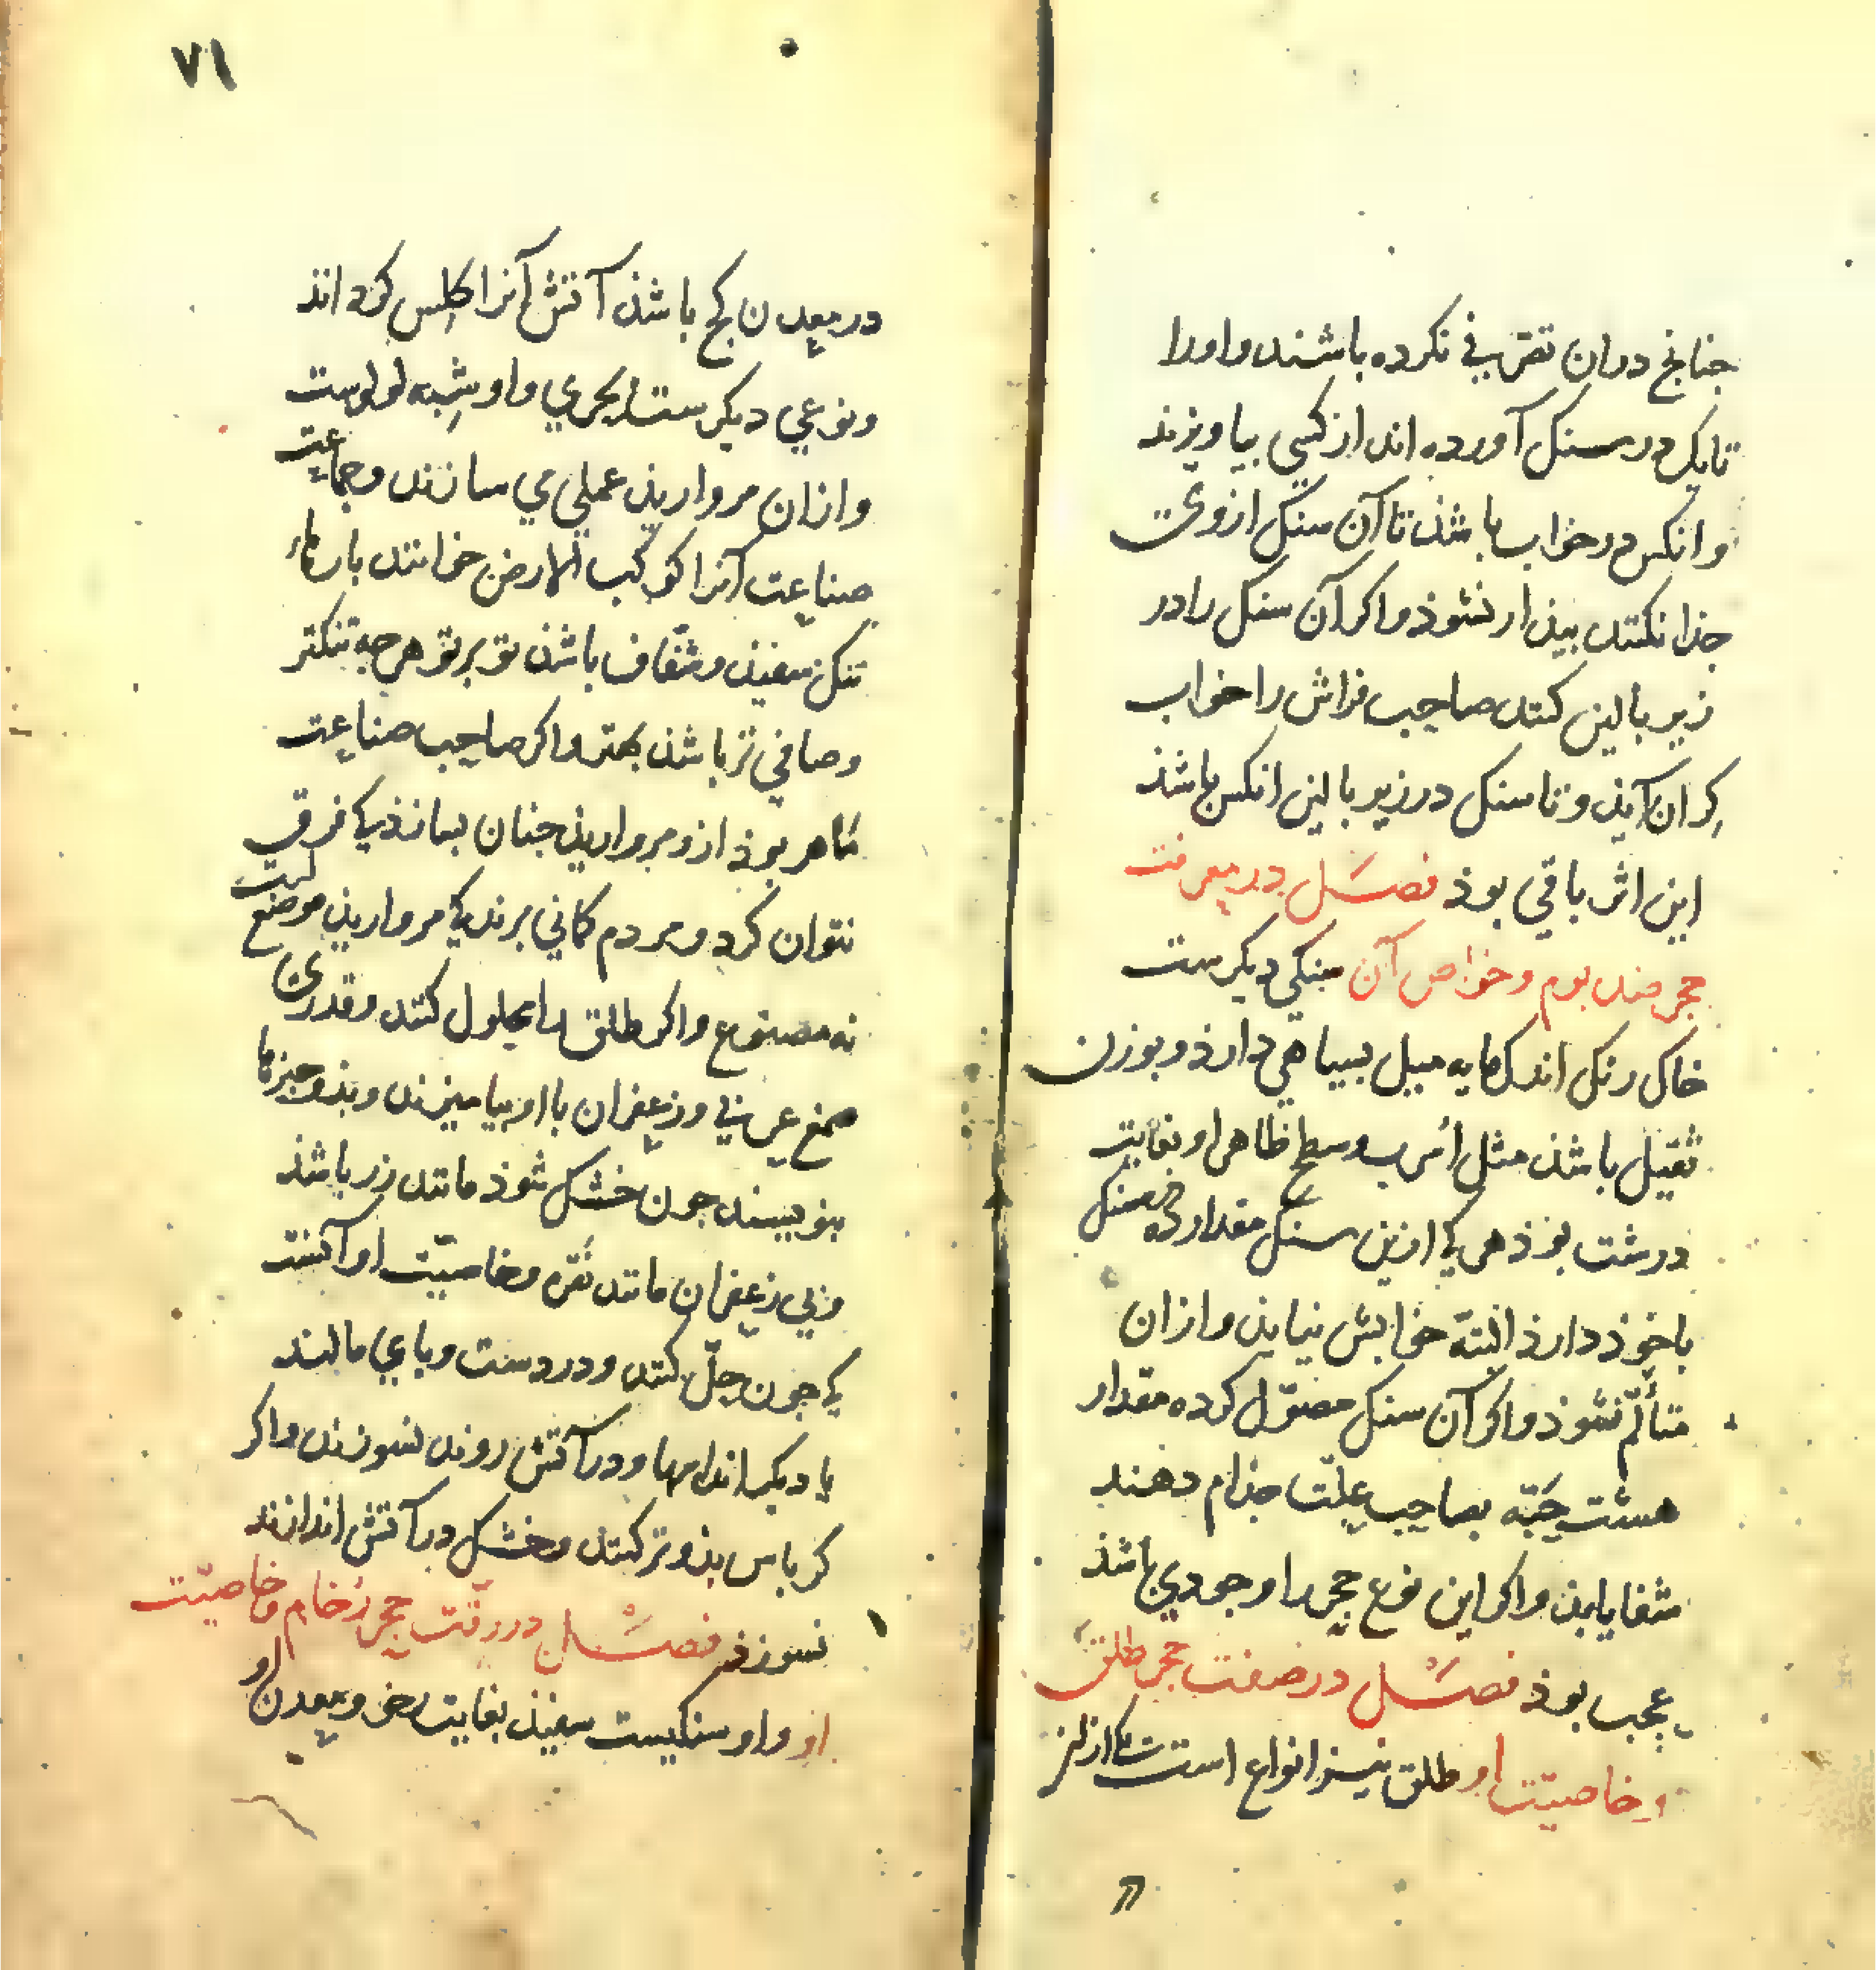 جنانچ دران تصرفی نکرده باشند واورا
تایک درسنک آورده اند از کسی بیاویزند
وانکس درخواب باشذ تا آن سنک ازوی
جذا نکنند بیذار نشوذ واکر آن سنک را در
زیر بالین کنند صاحب فراش را خواب
کران آیذ و تا سنک در زیر بالین انکس باشذ
این اثر باقی بوذ فصل در معرفت
حجر صندبوم وخواص آن سنکی دیکرست
خاک رنک اندک مایه میل بسیاهی دارذ وبوزن
ثقیل باشذ مثل اسرب وسطح ظاهر او بغایت
درشت بوذ هر کی ازین سنک مقدار ده درمسنک
باخوذ دارذ البته خوابش نیایذ وازان
متألم نشوذ واکر آن سنک مصول کرده مقدار
هشت حبه بصاحب علت جذام دهند
شفا یابذ واکر این نوع حجر را وجودی باشذ
عجب بوذ فصل در صفت حجر طلق
وخاصیت او طلق نیز انواع است
۷۱
در معدن کج باشذ آتش آنرا کلس کرداند
ونوعی دیکرست بحری واو شبه لولوست
وازان مرواریذ عملی می سازند وجماعت
صناعت آنرا کوکب الارض خوانند پارهاء
تنک سفیذ وشفاف باشذ تو بر تو هرچه تنکتر
وصافی تر باشذ بهتر واکر صاحب صناعت
ماهر بوذ ازو مرواریذ جنان بسازذ کی فرق
نتوان کرد ومردم کمانی برند کی مرواریذ موضع است
نه مصنوع واکر طلق را محلول کنند وقدری
صمغ عربی وزعفران با او بیامیزند وبذو جیزها
بنویسند جون خشک شوذ مانند زر باشذ
وبی زعفران مانند نقره وخاصیت او آنست
کی جون حل کنند ودر دست وپای مالند
یا دیکر اندامها ودر آتش روند نسوزند واکر
کرباس بذو تر کنند وخشک در آتش اندازند
نسوزذ فصل در رقت حجر رخام وخاصیت
او واو سنکیست سفیذ بغایت رخو ومعدن او